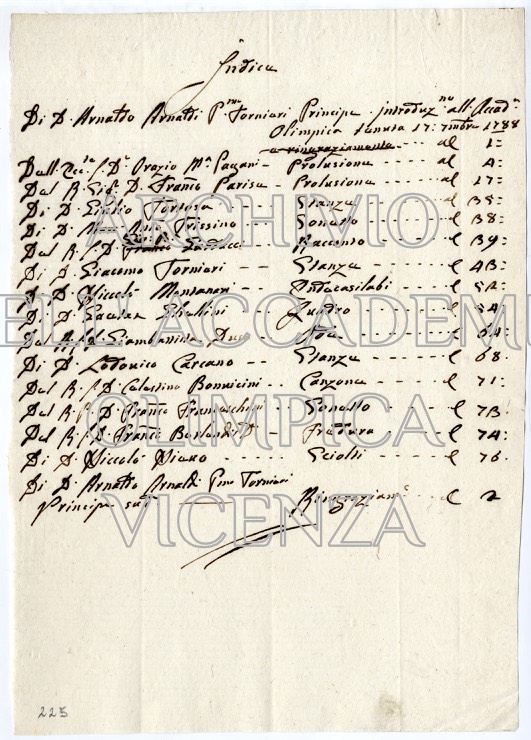 Indice
Di D. Arnaldo Arnaldi P.mo Torniari Principe introduz.ne all' Accad.a
Olimpica tenuta 17. 7mbre 1788
e ringraziamento - - - al 1=
Dall' Ecc. S. D.r Orazio M.a Pagani - Prolusione - - - al 4=
Dal R. Sig.r D. Franco Parise - Prolusione - - - al 17=
Di D. Giulio - Stanze - - - al 35=
Di D. Trissino - Sonetto - - - al 38=
Dal R. S. D. Racconto - - - al 39=
Di D. Giacomo Torniari - - Stanze - - - al 43=
Di D. Niccolò Montanari - - Ottocasilabi - - - al
Di D. - - Quadro - - - al
Dal R. S. D. Giambattista - -
Di D. Lodovico Carcano - - Stanze - - - al 68=
Dal R. S. D. Celestino Bonvicini - - Canzone - - - al 71=
Dal R. S. D. Franco Franceschini - Sonetto - - - al 73=
Dal R. S. D. Franco - - - al 74=
Di D. Niccolò - - Sciolti - - - al 76=
Di D. Arnaldo Arnaldi P.mo Torniari
Principe sud.o - Ringraziam.o - - - al 2
225
ARCHIVIO
DELL'ACCADEMIA
OLIMPICA
VICENZA